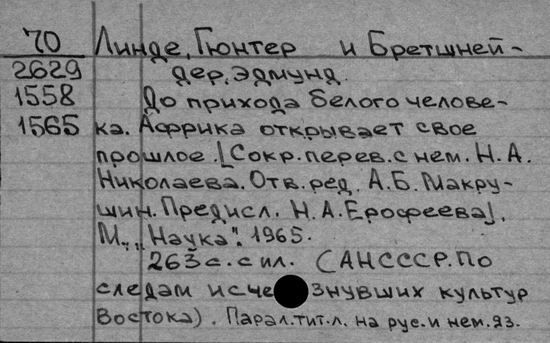 70 Линде, Гюнтер и Бретшней-
2629 дер, Эдмунд.
1558 До прихода белого челове-
1565 ка. Африка открывает свое
прошлое. [Сокр. перев. с нем. Н. А.
Николаева. Отв. ред. А. Б. Макру-
шин. Предисл. Н. А. Ерофеева].
М., „Наука". 1965.
263 с. с ил. (АНСССР. По
следам исчезнувших культур
Востока). Парал. тит. л. на рус. и нем. яз.